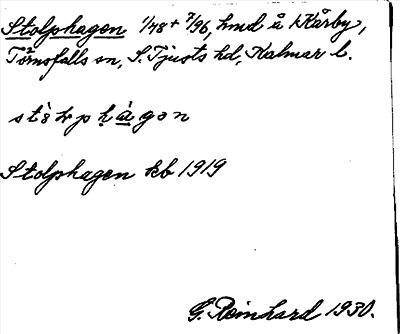 Stolphagen 1/48 + 7/96, hmd å Kårby,
Törnsfalls sn, S. Tjusts hd, Kalmar l.
Stolphagen kb 1919
G. Reinhard 1930.